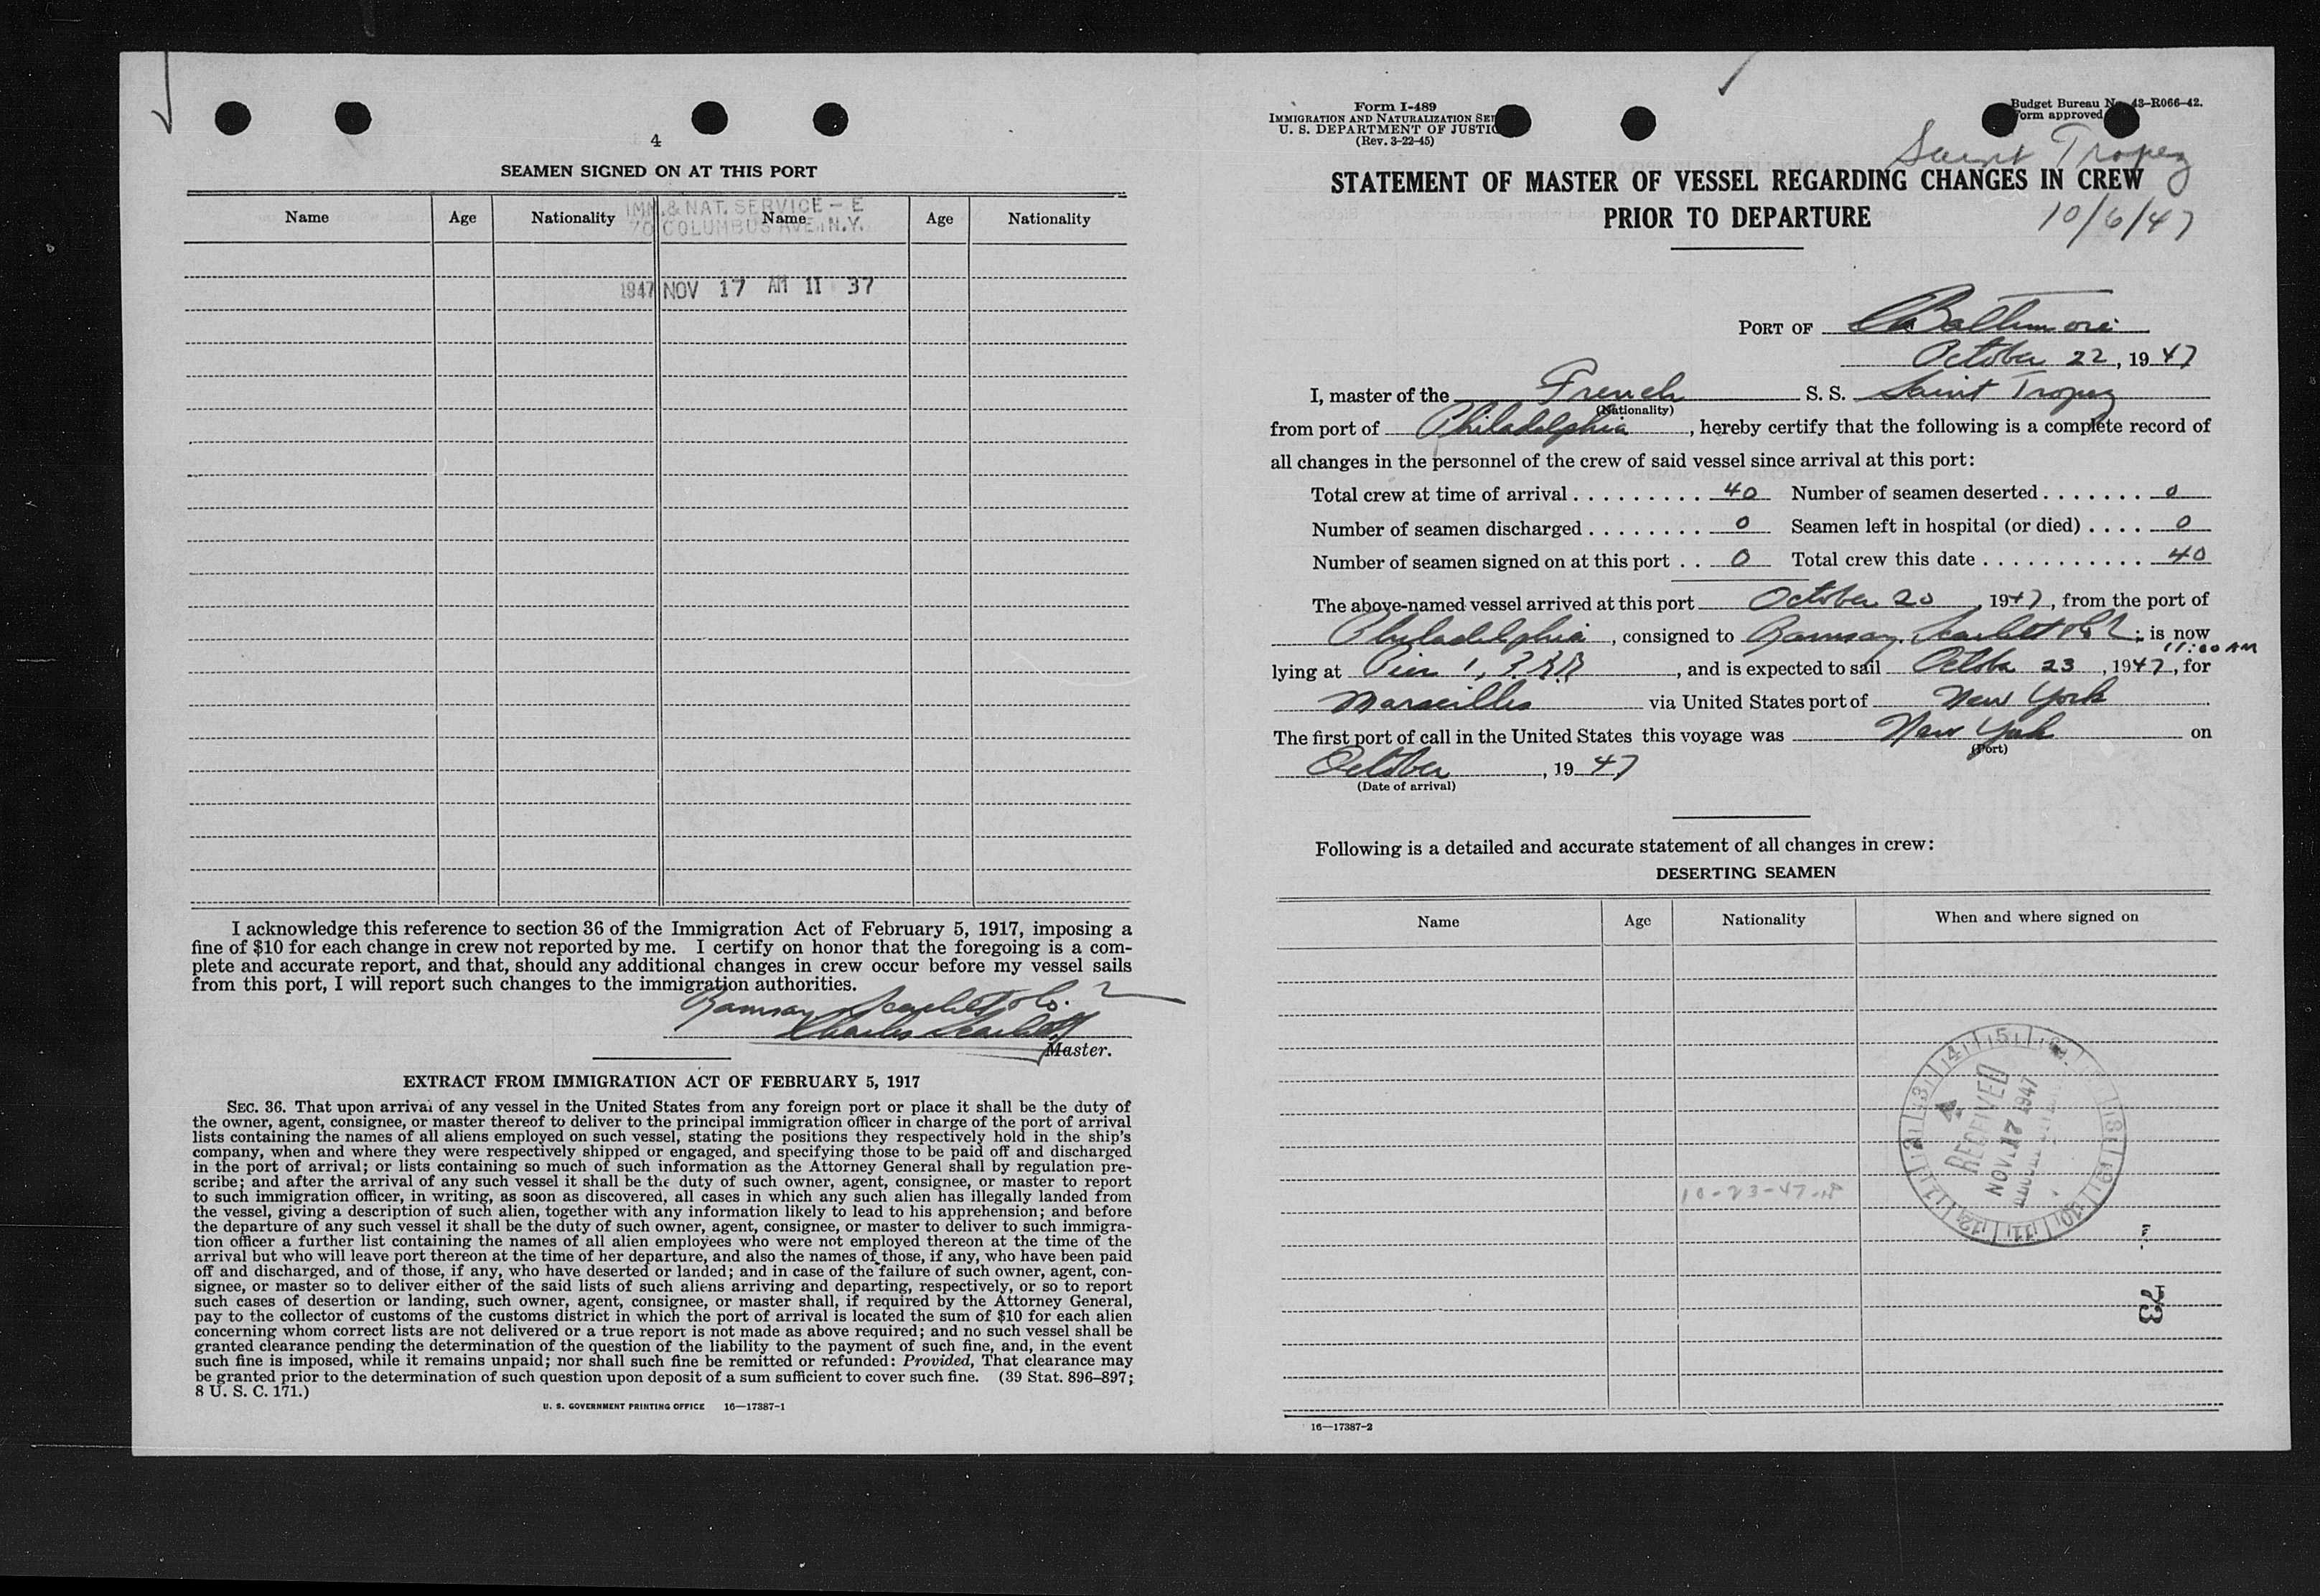 4
SEAMEN SIGNED ON AT THIS PORT
Name Age Nationality Name Age Nationality
IMM. & NAT. SERVICE – E
70 COLUMBUS AVE. N.Y.
1947 NOV 17 AM 11 37
I acknowledge this reference to section 36 of the Immigration Act of February 5, 1917, imposing a
fine of $10 for each change in crew not reported by me. I certify on honor that the foregoing is a com-
plete and accurate report, and that, should any additional changes in crew occur before my vessel sails
from this port, I will report such changes to the immigration authorities.
Ramsay Scarlett & Co.
Charles Scarlett
Master.
EXTRACT FROM IMMIGRATION ACT OF FEBRUARY 5, 1917
SEC. 36. That upon arrival of any vessel in the United States from any foreign port or place it shall be the duty of
the owner, agent, consignee, or master thereof to deliver to the principal immigration officer in charge of the port of arrival
lists containing the names of all aliens employed on such vessel, stating the positions they respectively hold in the ship's
company, when and where they were respectively shipped or engaged, and specifying those to be paid off and discharged
in the port of arrival; or lists containing so much of such information as the Attorney General shall by regulation pre-
scribe; and after the arrival of any such vessel it shall be the duty of such owner, agent, consignee, or master to report
to such immigration officer, in writing, as soon as discovered, all cases in which any such alien has illegally landed from
the vessel, giving a description of such alien, together with any information likely to lead to his apprehension; and before
the departure of any such vessel it shall be the duty of such owner, agent, consignee, or master to deliver to such immigra-
tion officer a further list containing the names of all alien employees who were not employed thereon at the time of the
arrival but who will leave port thereon at the time of her departure, and also the names of those, if any, who have been paid
off and discharged, and of those, if any, who have deserted or landed; and in case of the failure of such owner, agent, con-
signee, or master so to deliver either of the said lists of such aliens arriving and departing, respectively, or so to report
such cases of desertion or landing, such owner, agent, consignee, or master shall, if required by the Attorney General,
pay to the collector of customs of the customs district in which the port of arrival is located the sum of $10 for each alien
concerning whom correct lists are not delivered or a true report is not made as above required; and no such vessel shall be
granted clearance pending the determination of the question of the liability to the payment of such fine, and, in the event
such fine is imposed, while it remains unpaid; nor shall such fine be remitted or refunded: Provided, That clearance may
be granted prior to the determination of such question upon deposit of a sum sufficient to cover such fine. (39 Stat. 896–897;
8 U. S. C. 171.)
U. S. GOVERNMENT PRINTING OFFICE 16—17387-1
Form I-489
IMMIGRATION AND NATURALIZATION SER
U. S. DEPARTMENT OF JUSTIC
(Rev. 3-22-45)
Budget Bureau N 43-R066-42.
orm approved
Saint Tropez
STATEMENT OF MASTER OF VESSEL REGARDING CHANGES IN CREW
PRIOR TO DEPARTURE
10/6/47
PORT OF Baltimore
October 22, 19 47
I, master of the French S. S. Saint Tropez
(Nationality)
from port of Philadelphia, hereby certify that the following is a complete record of
all changes in the personnel of the crew of said vessel since arrival at this port:
Total crew at time of arrival . . . . . . . . . 40 Number of seamen deserted . . . . . . . 0
Number of seamen discharged . . . . . . . . 0 Seamen left in hospital (or died) . . . . 0
Number of seamen signed on at this port . . 0 Total crew this date . . . . . . . . . . . 40
The above-named vessel arrived at this port October 20, 1947, from the port of
Philadelphia, consigned to Ramsay, Scarlett & Co; is now
11:00 AM
lying at Pier 1, , and is expected to sail October 23, 1947, for
Marseilles via United States port of New York
The first port of call in the United States this voyage was New York on
(Port)
October, 19 47
(Date of arrival)
Following is a detailed and accurate statement of all changes in crew:
DESERTING SEAMEN
Name Age Nationality When and where signed on
RECEIVED
NOV 17 1947
10-23-47
173
16—17387-2